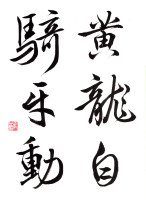 黄龍自
騎牙動